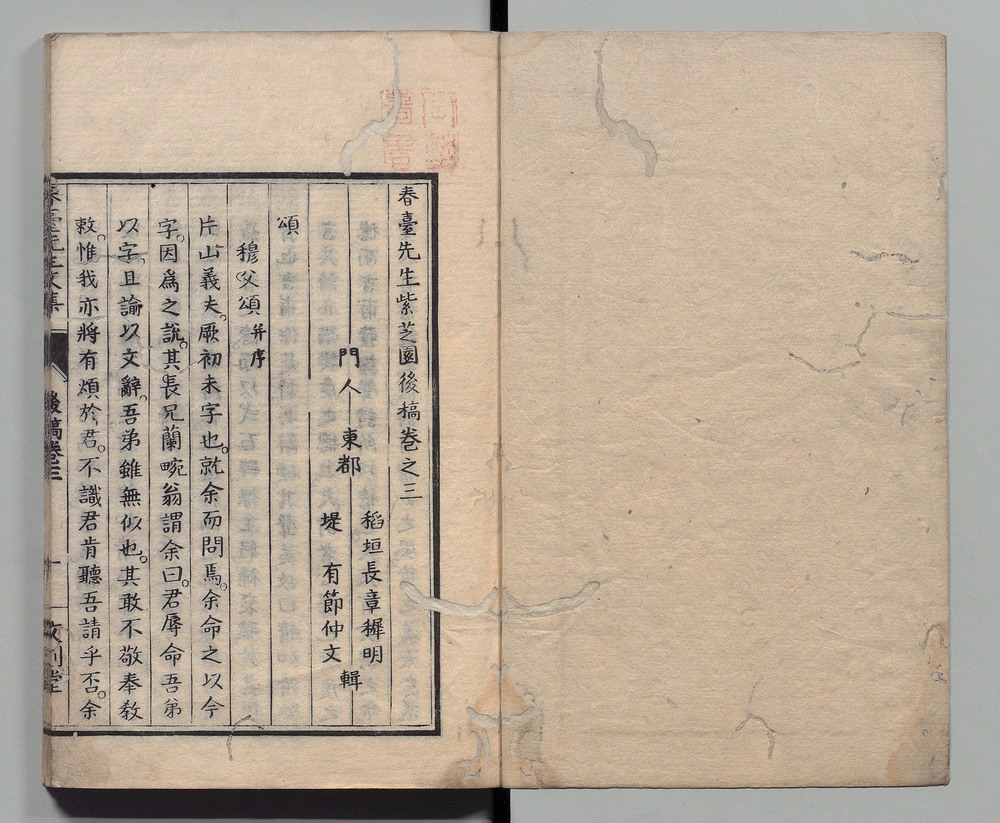 春臺先生紫芝園後稿卷之三
門人 東都 稻垣長章穉明
堤 有節仲文 輯
頌
穆父頌 并序
片山義夫。厥初未字也。就余而問焉。余命之以今
字。因爲之説。其長兄蘭畹翁謂余曰。君辱命吾弟
以字。且諭以文辭。吾弟雖無似也。其敢不敬奉教
敕。惟我亦將有煩於君。不識君肯聽吾請乎否。余
春臺先生文集
後稿卷三